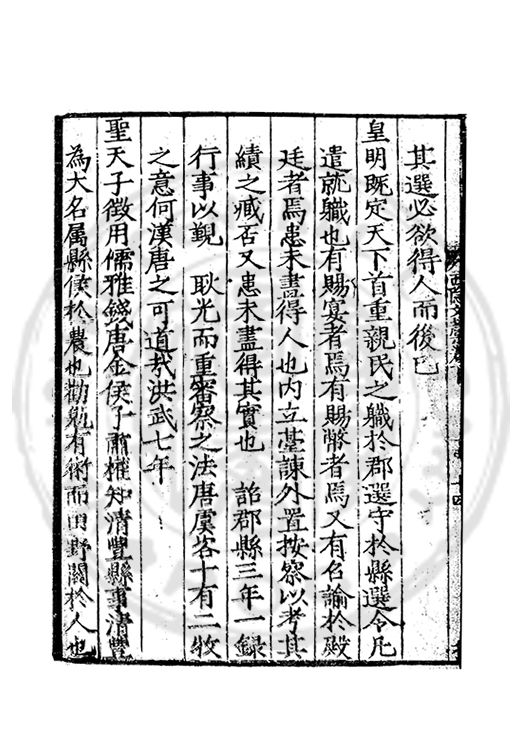 其選必欲得人而後已
皇明既定天下首重親民之職於郡選守於縣選令凡
遣就職也有賜宴者焉有賜幣者焉又有名諭於殿
廷者焉患未盡得人也内立臺諫外置按察以考其
績之臧否又患未盡得其實也 詔郡縣三年一錄
行事以覲 耿光而重審察之法唐虞咨十有二牧
之意何漢唐之可道哉洪武七年
聖天子徵用儒雅錢唐金侯子肅權知清豐縣事清豐
為大名属縣侯於農也勸勉有術而田野闢於人也